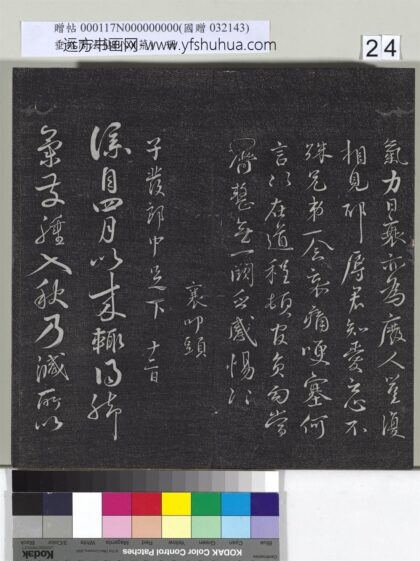 贈帖 000117N000000000(國贈 032143)
远方书画网 www.yfshuhua.com
24
氣力日衰亦為廢人豈復
相見邪辱君知愛不
殊兄弟一念哀痛哽塞何
言以在道程頓
齊整無一闕感惕
襄叩頭
子發郎中足下 十二日
僕自四月以來輒得腳
氣發腫入秋乃減所以
KODAK Color Control Patches
Kodak
Black
3/Color
White
Magenta
Red
Yellow
Green
Cyan
Blue